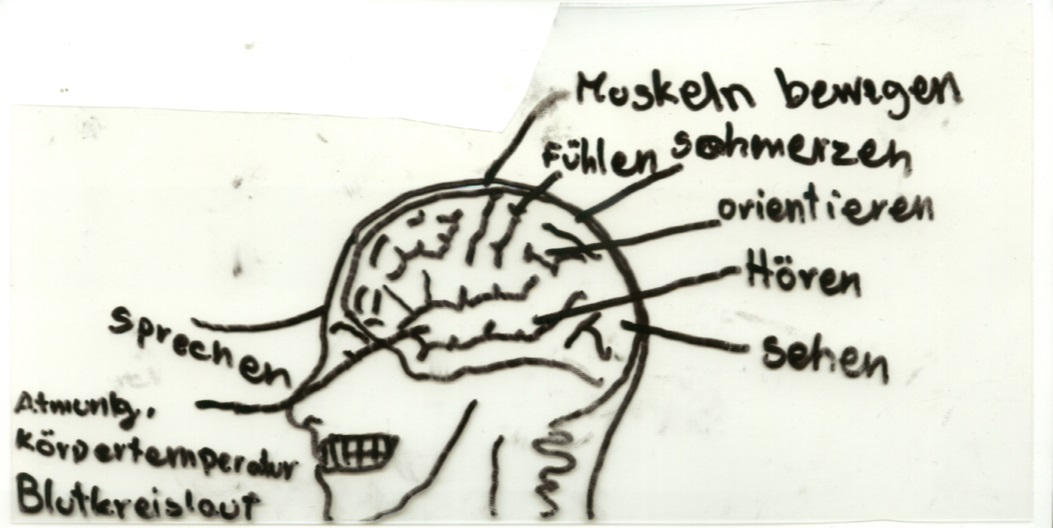 Muskeln bewegen
Fühlen schmerzen
orientieren
Hören
sehen
sprechen
Atmung,
Körpertemperatur
Blutkreislauf